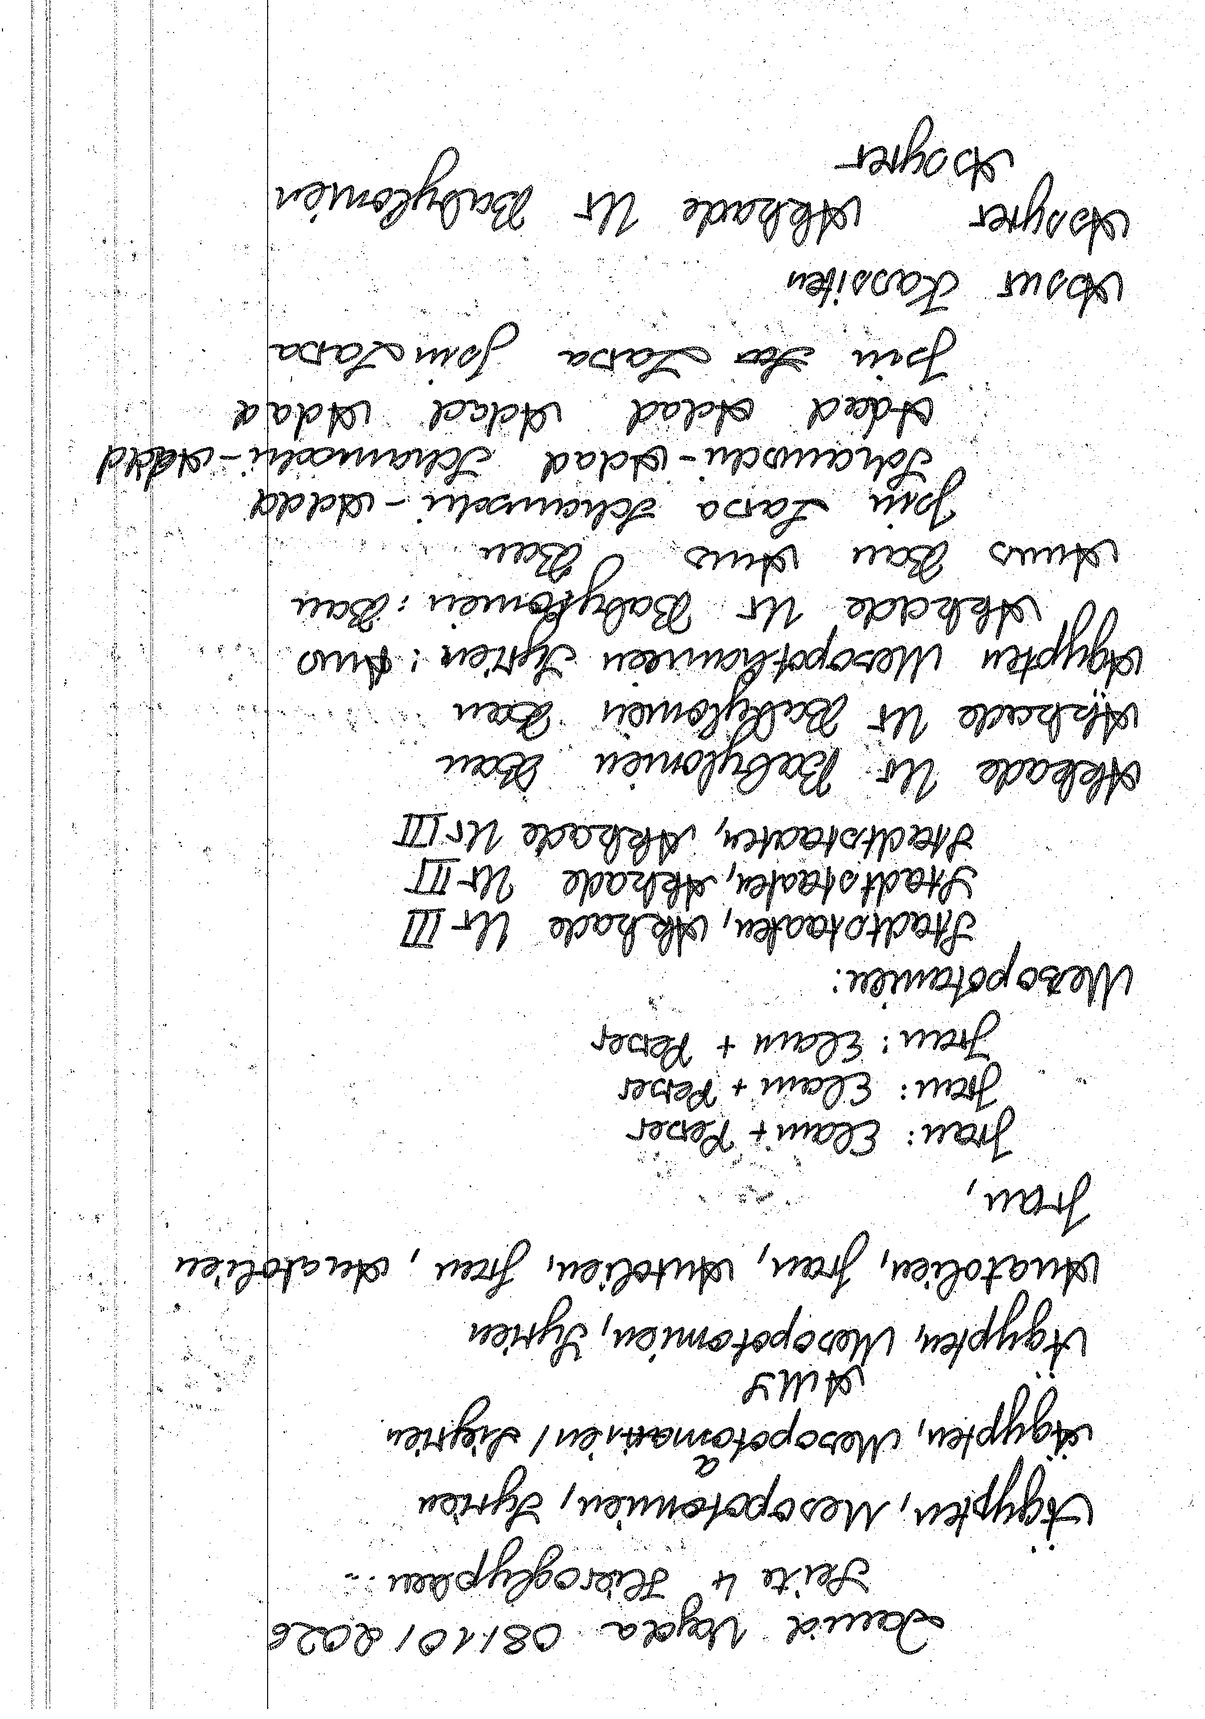 David Vajda 08/10/2026
Seite 4 Hieroglyphen...
Ägypten, Mesopotamien, Syrien
Ägypten, Mesopotamien / Syrien
AMS
Ägypten, Mesopotamien, Syrien
Anatolien, Iran, Antolien, Iran, Anatolien
Iran,
Iran: Elam + Perser
Iran: Elam + Perser
Iran: Elam + Perser
Mesopotamien:
Stadtstaaten, Akkade Ur III
Stadtstaaten, Akkade Ur III
Stadtstaaten, Akkade Ur III
Akkade Ur Babylonien Bau
Akkade Ur Babylonien Bau
Ägypten Mesopothamien Syrien: Ams
Akkade Ur Babylonien: Bau
Ams Bau Ams Bau
Isin Larsa Schamschi-Adad
Schamschi-Adad Schamschi-Adad
Adad Adad Adad Adad
Isin Larsa Isin Larsa
Assur Kassiten
Assyrer Akkade Ur Babylonien
Assyrer